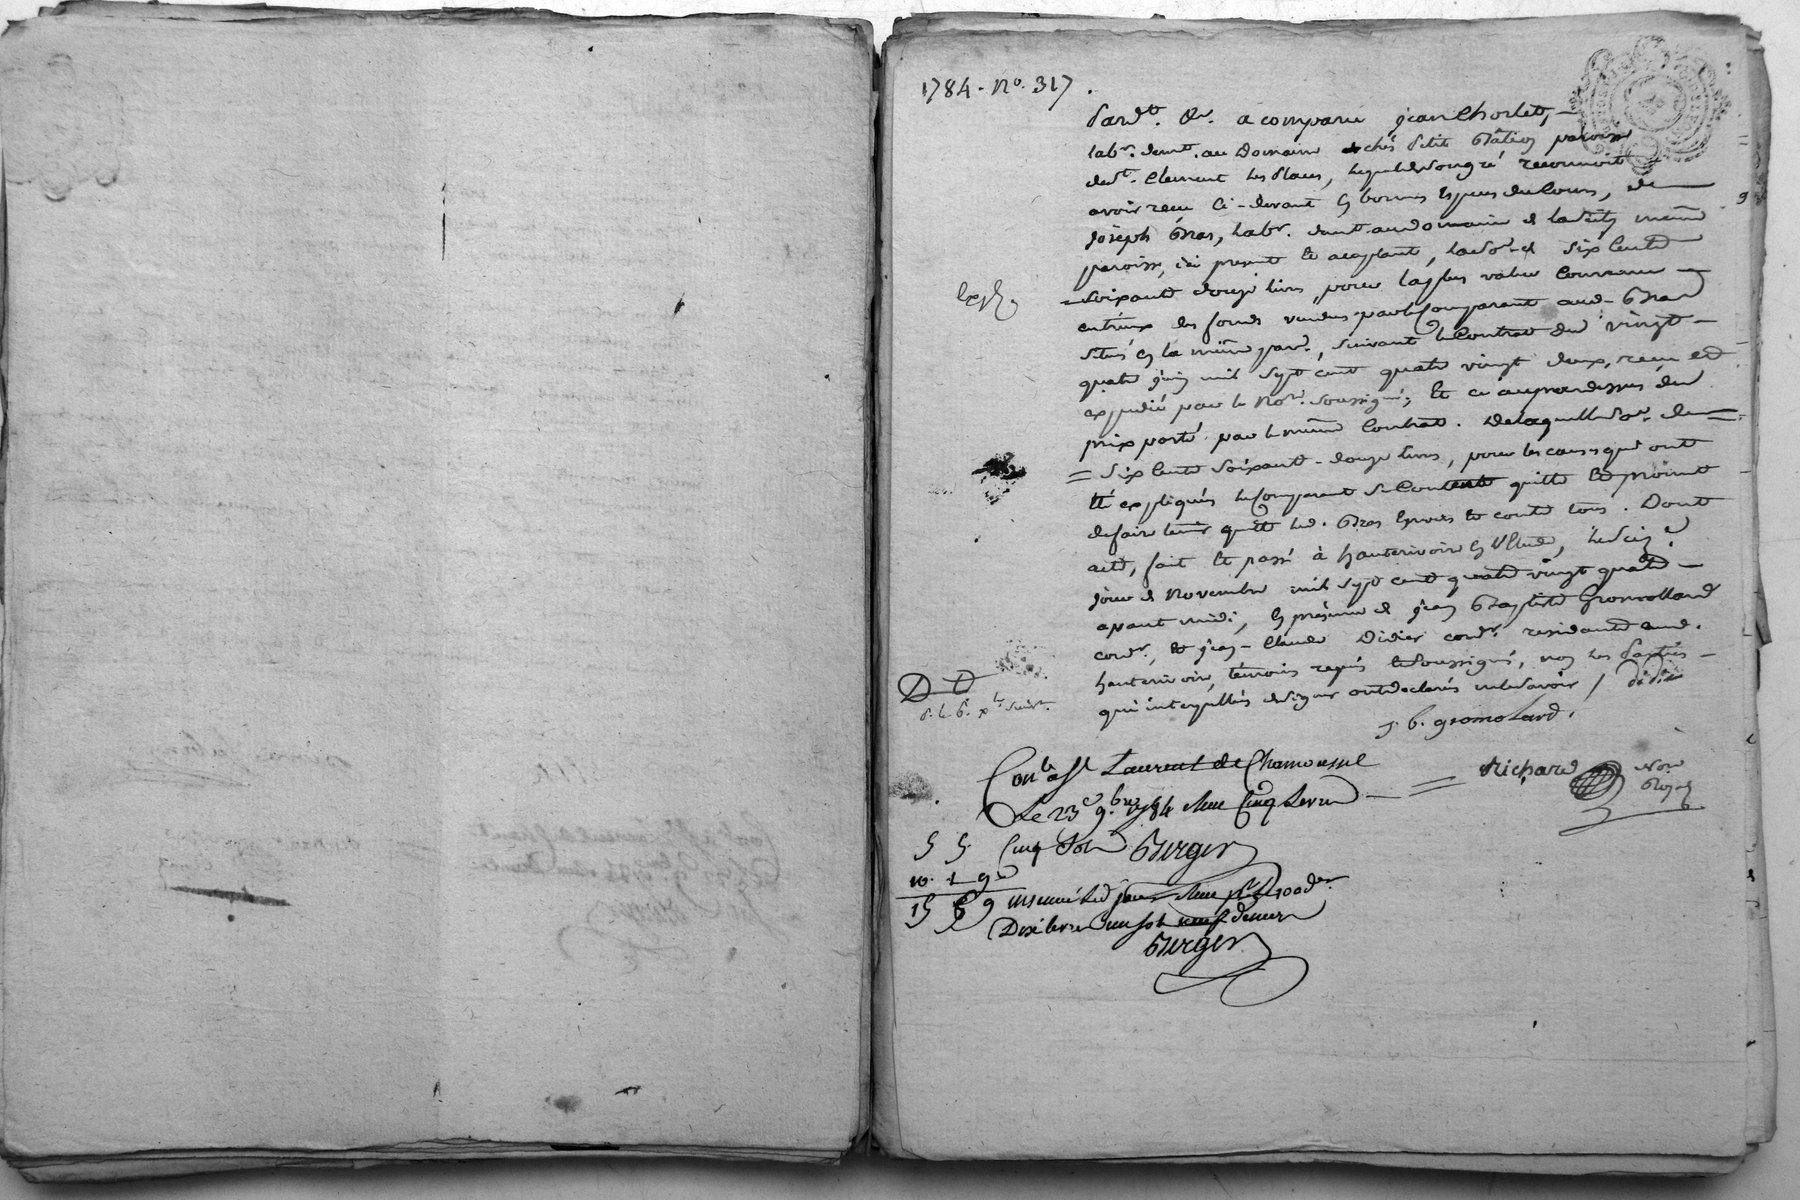 1784 - No. 317.
Pardt. &r. a comparu jean Chorlet,
labr. demt. au Domaine chés Petit paroisse
de St. Clement les places, lequel de son gré reconnoit
avoir recu ci-devant en bonnes espèces du Cours, de
joseph Bras, labr. demt. au domaine de même
paroisse, ici present et acceptant, la so. de six Cents
soixante douze livres, pour la plus value Convenue
entr'eux des fonds vendus par le Comparant aud. Bras
situés en la même parr., suivant le Contrat du vingt
quatre juin mil sept cent quatre vingt deux, recu et
expedié par le Nore. soussigné; et ce au par dessus du
prix porté par le même Contrat. De laquelle so. de
six Cents soixante-douze livres, pour les causes qui ont
été expliquées le Comparant se Contente quitte et promet
de faire tenir quitte led. Bras envers et contre tous. Dont
acte, fait et passé à hauterivoire en l'Etude, le
jour de Novembre mil sept cent quatre vingt quatre
avant midi, en présence de jean Baptiste Gromolland
cordr., et jean-Claude Didier cordr. residants aud.
hauterivoire, témoins requis et soussignés, non les parties
qui interpellées de signer ont declarés ne le savoir / Didier
j. b. gromolard.
Conlé. a St. Laurent de Chamousset
Le 23e. 9bre 1784 Recu Cinq Livres
5 5. Cinq Sols Berger
Richard Nore Royal
10. 1 9
15 6 9 insinué led jour Recu
Dix livres un sol neuf deniers
Berger